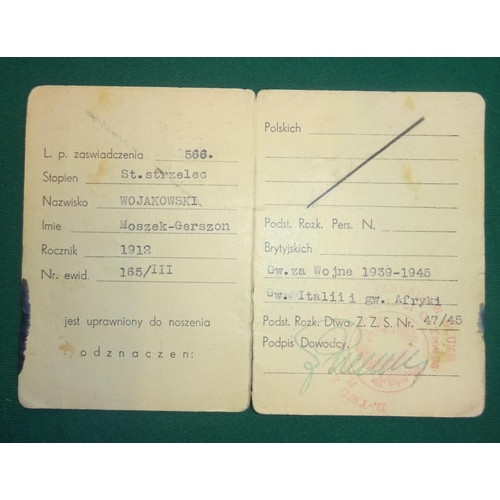 L. p. zaswiadczenia 566.
Stopien St.strzelec
Nazwisko WOJAKOWSKI
Imie Moszek-Gerszon
Rocznik 1912
Nr. ewid. 165/III
jest uprawniony do noszenia
odznaczen:
Polskich
Podst. Rozk. Pers. N.
Brytyjskich
Gw.za Wojne 1939-1945
Gw.Italii i gw. Afryki
Podst. Rozk. Dtwa. Z. Z. S. Nr. 47/45
Podpis Dowodcy.